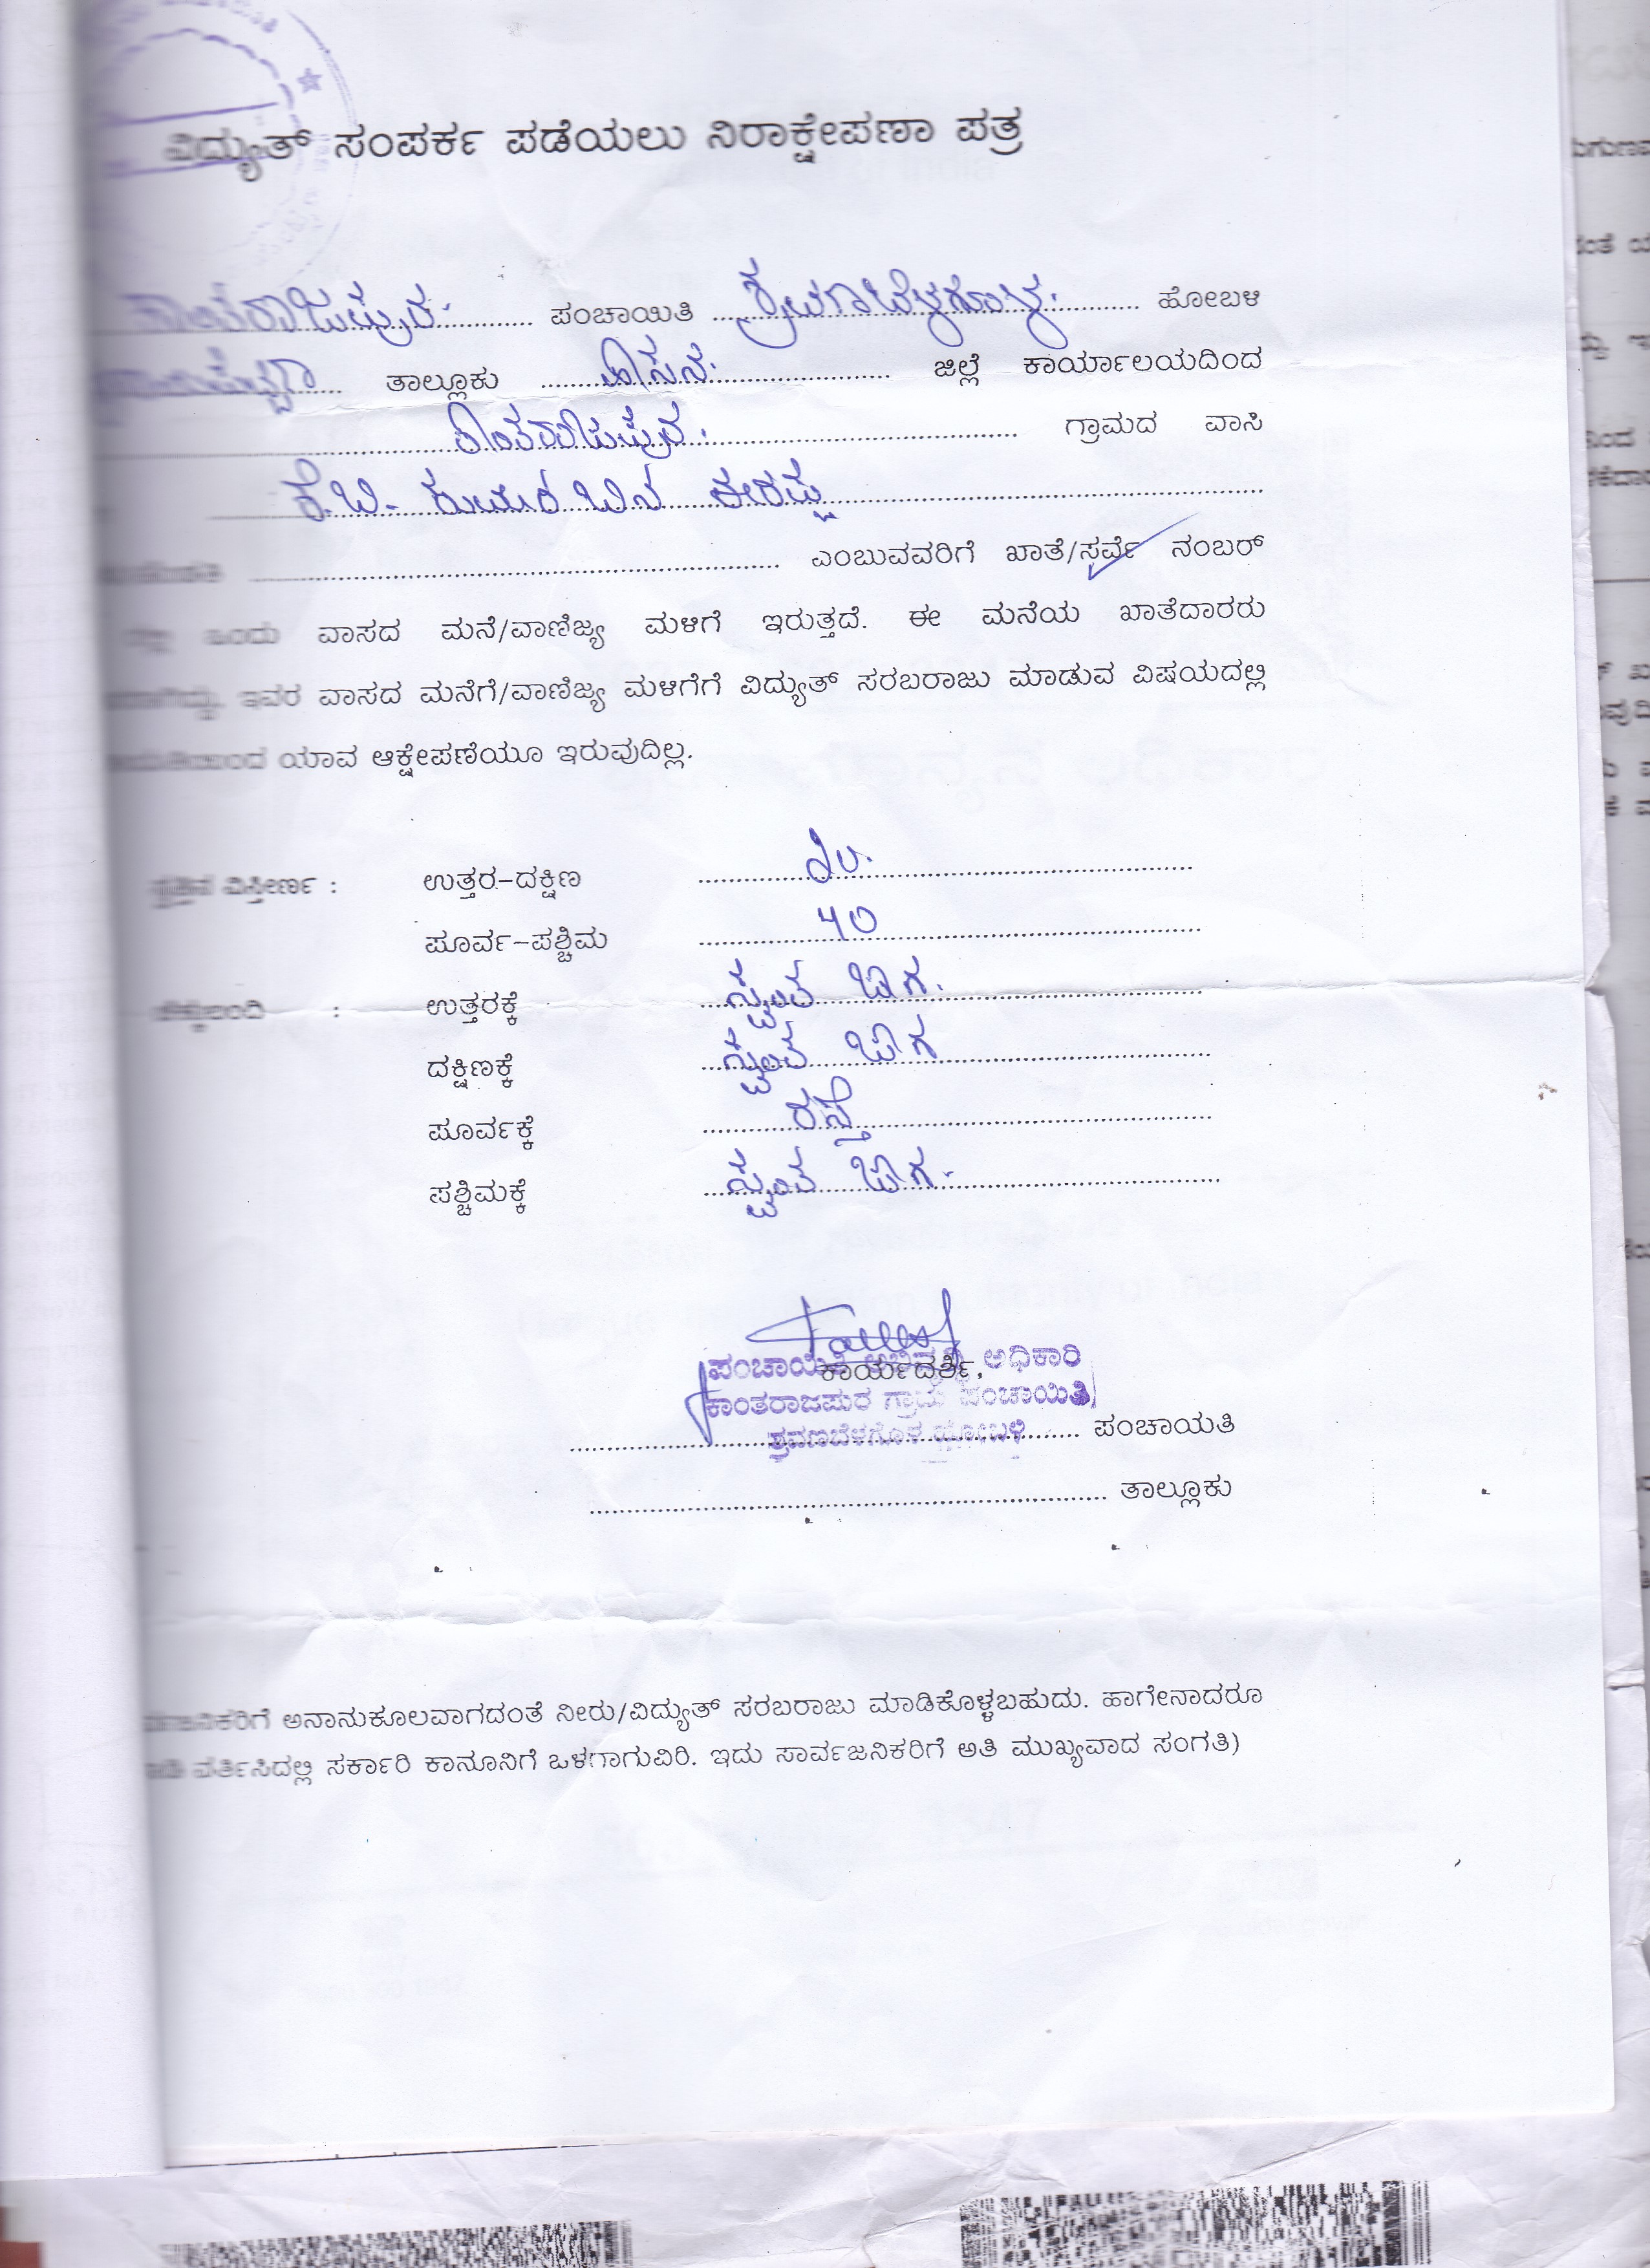 ವಿದ್ಯುತ್ ಸಂಪರ್ಕ ಪಡೆಯಲು ನಿರಾಕ್ಷೇಪಣಾ ಪತ್ರ
ಕಾಂತರಾಜಪುರ. ಪಂಚಾಯಿತಿ ಶ್ರವಣಬೆಳಗೊಳ. ಹೋಬಳಿ
ತಾಲ್ಲೂಕು ಹಾಸನ. ಜಿಲ್ಲೆ ಕಾರ್ಯಾಲಯದಿಂದ
ಕಾಂತರಾಜಪುರ. ಗ್ರಾಮದ ವಾಸಿ
ಕೆ.ಬಿ. ಕುಮಾರ ಬಿನ್ ಈರಪ್ಪ
ಎಂಬುವವರಿಗೆ ಖಾತೆ/ಸರ್ವೆ ನಂಬರ್
ಒಂದು ವಾಸದ ಮನೆ/ವಾಣಿಜ್ಯ ಮಳಿಗೆ ಇರುತ್ತದೆ. ಈ ಮನೆಯ ಖಾತೆದಾರರು
ಇವರ ವಾಸದ ಮನೆಗೆ/ವಾಣಿಜ್ಯ ಮಳಿಗೆಗೆ ವಿದ್ಯುತ್ ಸರಬರಾಜು ಮಾಡುವ ವಿಷಯದಲ್ಲಿ
ಯಾವ ಆಕ್ಷೇಪಣೆಯೂ ಇರುವುದಿಲ್ಲ.
ಸ್ವತ್ತಿನ ವಿಸ್ತೀರ್ಣ : ಉತ್ತರ-ದಕ್ಷಿಣ
ಪೂರ್ವ-ಪಶ್ಚಿಮ ೪೦
ಚೆಕ್ಕುಬಂದಿ : ಉತ್ತರಕ್ಕೆ ಸ್ವಂತ ಜಾಗ.
ದಕ್ಷಿಣಕ್ಕೆ ಸ್ವಂತ ಜಾಗ
ಪೂರ್ವಕ್ಕೆ ರಸ್ತೆ
ಪಶ್ಚಿಮಕ್ಕೆ ಸ್ವಂತ ಜಾಗ.
ಪಂಚಾಯಿತಿ ಅಭಿವೃದ್ಧಿ ಅಧಿಕಾರಿ
ಕಾರ್ಯದರ್ಶಿ,
ಕಾಂತರಾಜಪುರ ಗ್ರಾಮ ಪಂಚಾಯಿತಿ
ಶ್ರವಣಬೆಳಗೊಳ ಹೋಬಳಿ ಪಂಚಾಯತಿ
ತಾಲ್ಲೂಕು
ಅನಾನುಕೂಲವಾಗದಂತೆ ನೀರು/ವಿದ್ಯುತ್ ಸರಬರಾಜು ಮಾಡಿಕೊಳ್ಳಬಹುದು. ಹಾಗೇನಾದರೂ
ವರ್ತಿಸಿದಲ್ಲಿ ಸರ್ಕಾರಿ ಕಾನೂನಿಗೆ ಒಳಗಾಗುವಿರಿ. ಇದು ಸಾರ್ವಜನಿಕರಿಗೆ ಅತಿ ಮುಖ್ಯವಾದ ಸಂಗತಿ)